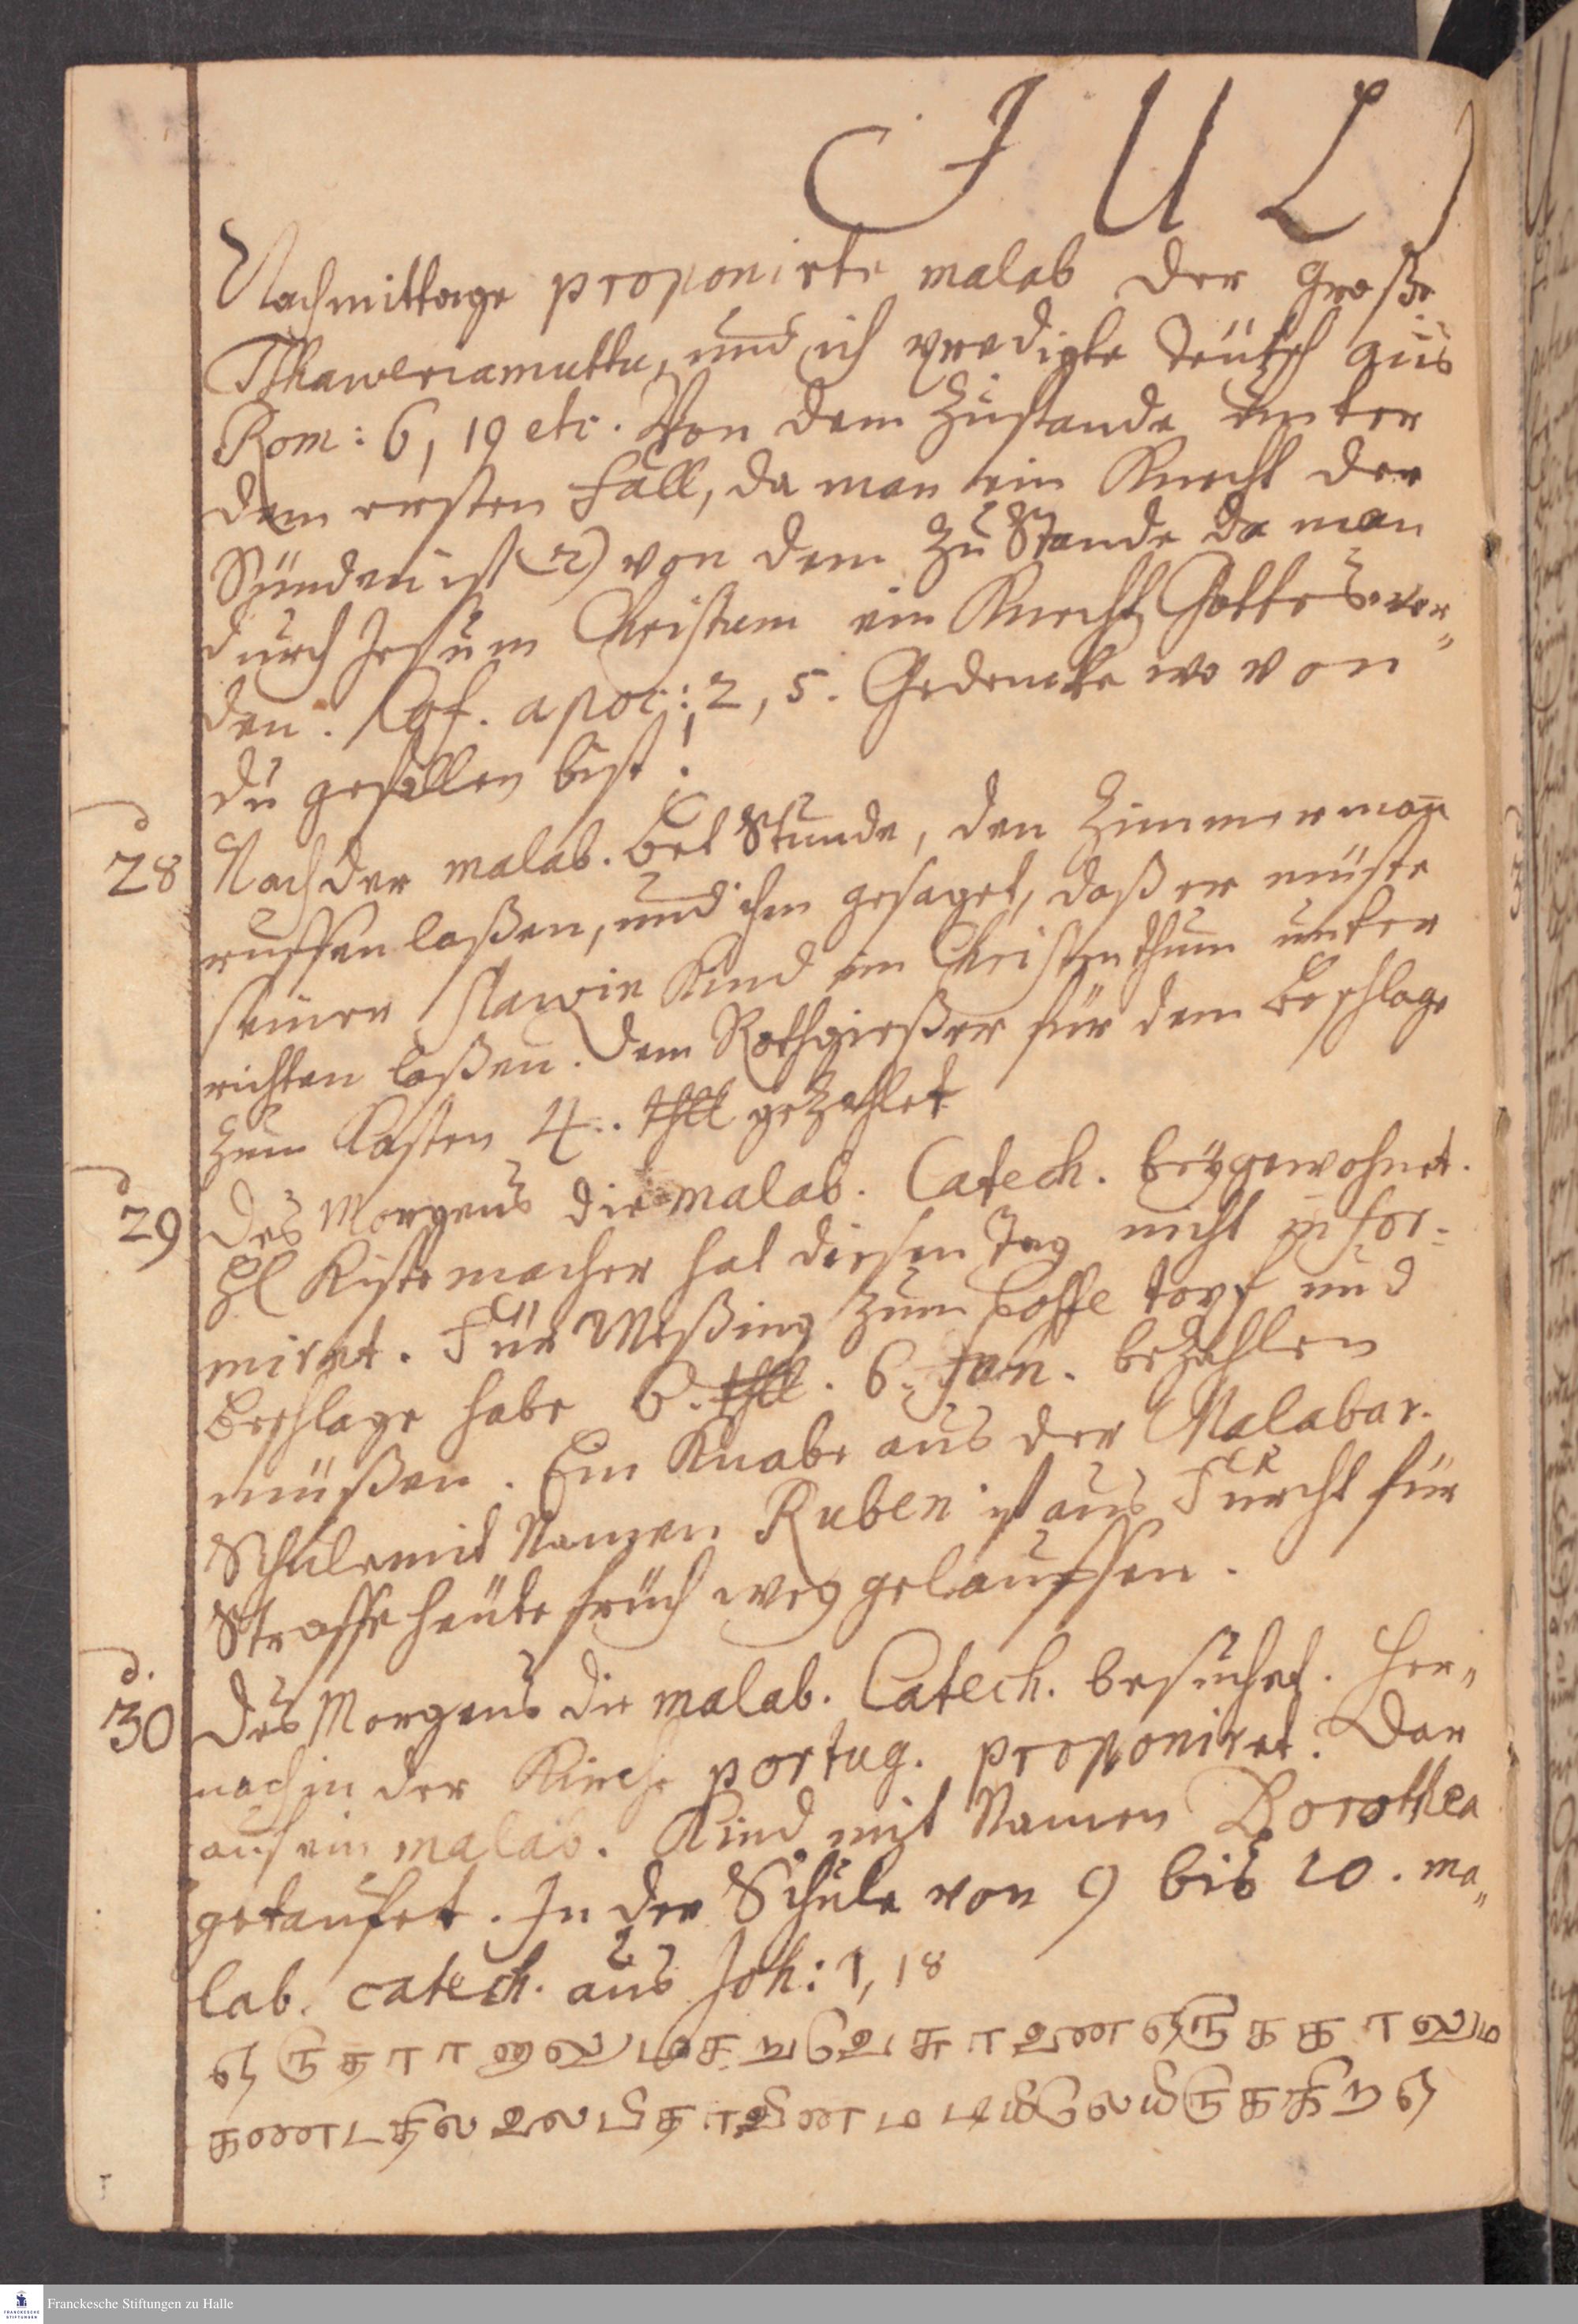 JULJ
Nachmittage proponirte malab der große
Tschaweriamuttu, und ich predigte teutsch aus
Rom: 6, 19 etc. Von dem Zustande unter
dem ersten Fall, da man ein Knecht der
Sünden ist (2) von dem Zustande da man
durch Jesum Christum ein Knecht Gottes wor„
den. apoc: 2, 5. Gedencke wovon
du gefallen bist!
d 28 Nach der malab. Bet Stunde, den Zimmerman
ruffen laßen, und ihm gesaget, daß er müste
seiner Slavin Kind im Christenthum unter
richten laßen. Dem Rothgießer für dem Beschlage
zum Kasten 4. thll gezahlet
d 29 Des Morgens die malab. Catech. beygewohnet.
H Kistemacher hat diesen Tag nicht infor-
miret. Für Meßing zum Coffe topf und
Beschlage habe 6. thll. 6. fan. bezahlen
müßen. Ein Knabe aus der Malabar.
Schule mit Namen Ruben ist aus Furcht für
Straffe heute früh weg gelauffen.
d. 30 Des Morgens die malab. Catech. besuchet. Her„
nach in der Kirche portug. proponiret. Dar
auf ein malab. Kind mit Namen Dorothea
getaufet. In der Schule von 9 bis 10. ma„
lab. catech. aus Joh: 1, 18